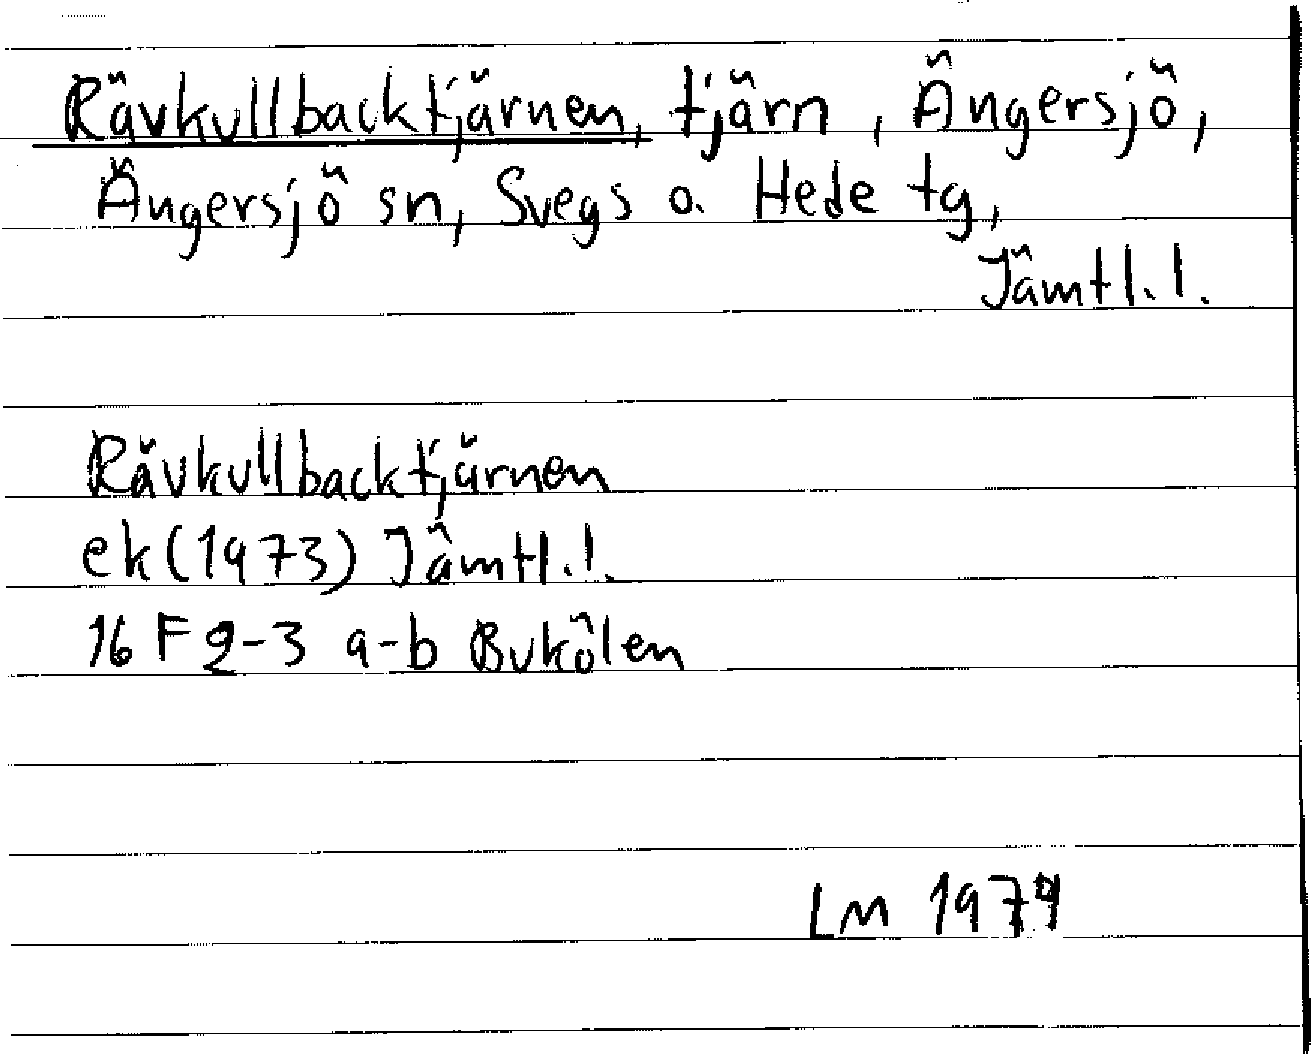 Rävkullbacktjärnen, tjärn, Ängersjö,
Ängersjö sn, Svegs o. Hede tg,
Jämtl. l.
Rävkullbacktjärnen
ek (1973) Jämtl. l.
16 F 2-3 a-b Bukölen
LM 1979